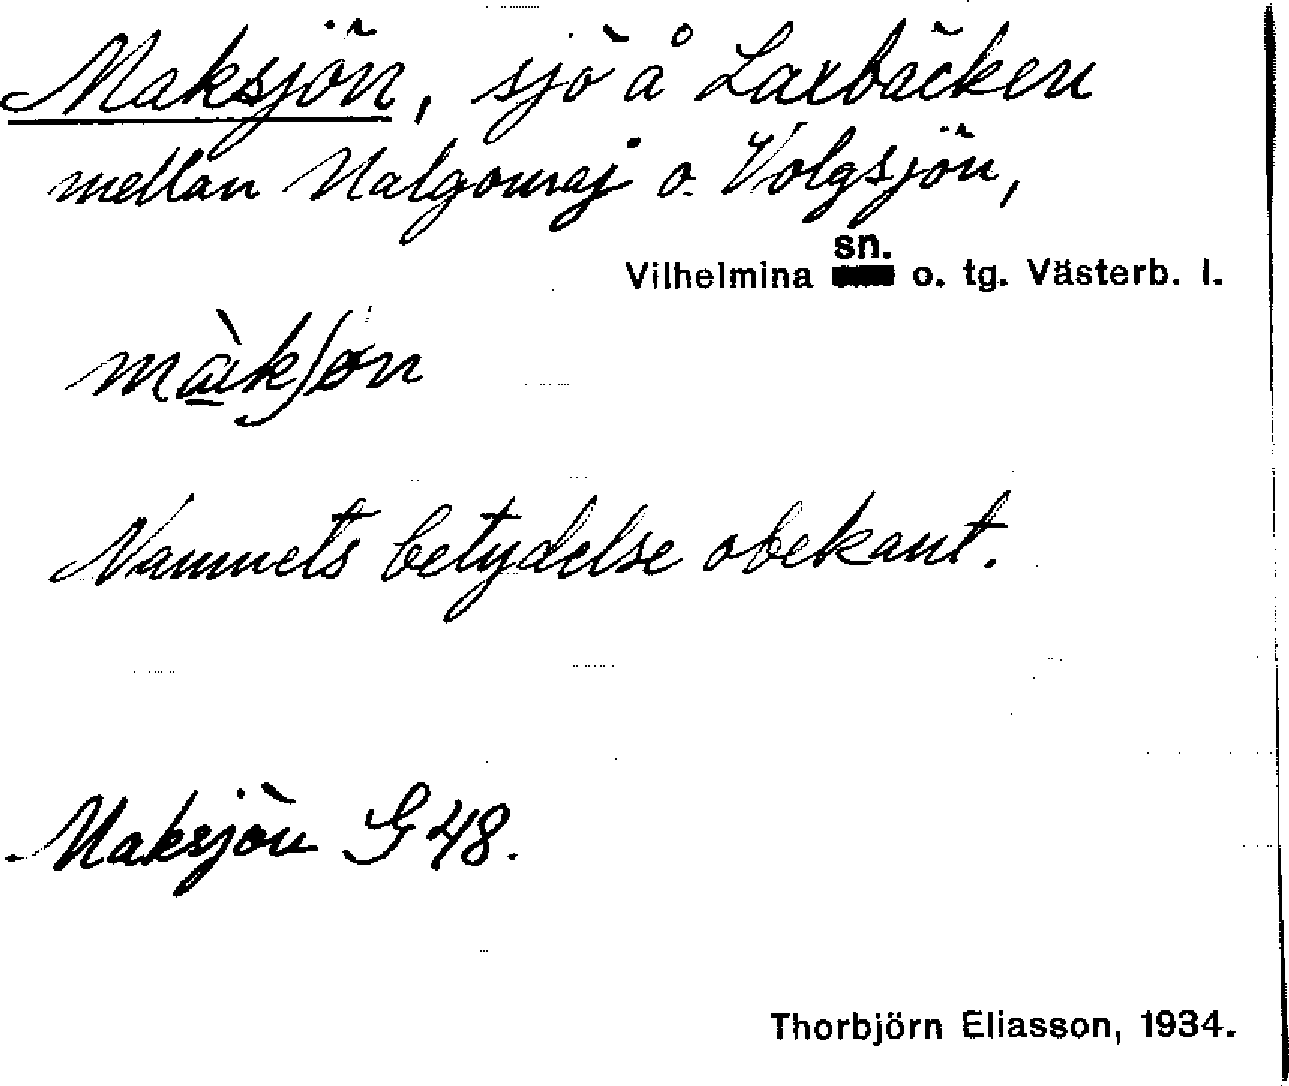 Maksjön, sjö å Laxbäcken
mellan Malgomaj o. Volgsjön,
sn.
Vilhelmina o. tg. Västerb. l.
Namnets betydelse obekant.
Maksjön G 48.
Thorbjörn Eliasson, 1934.